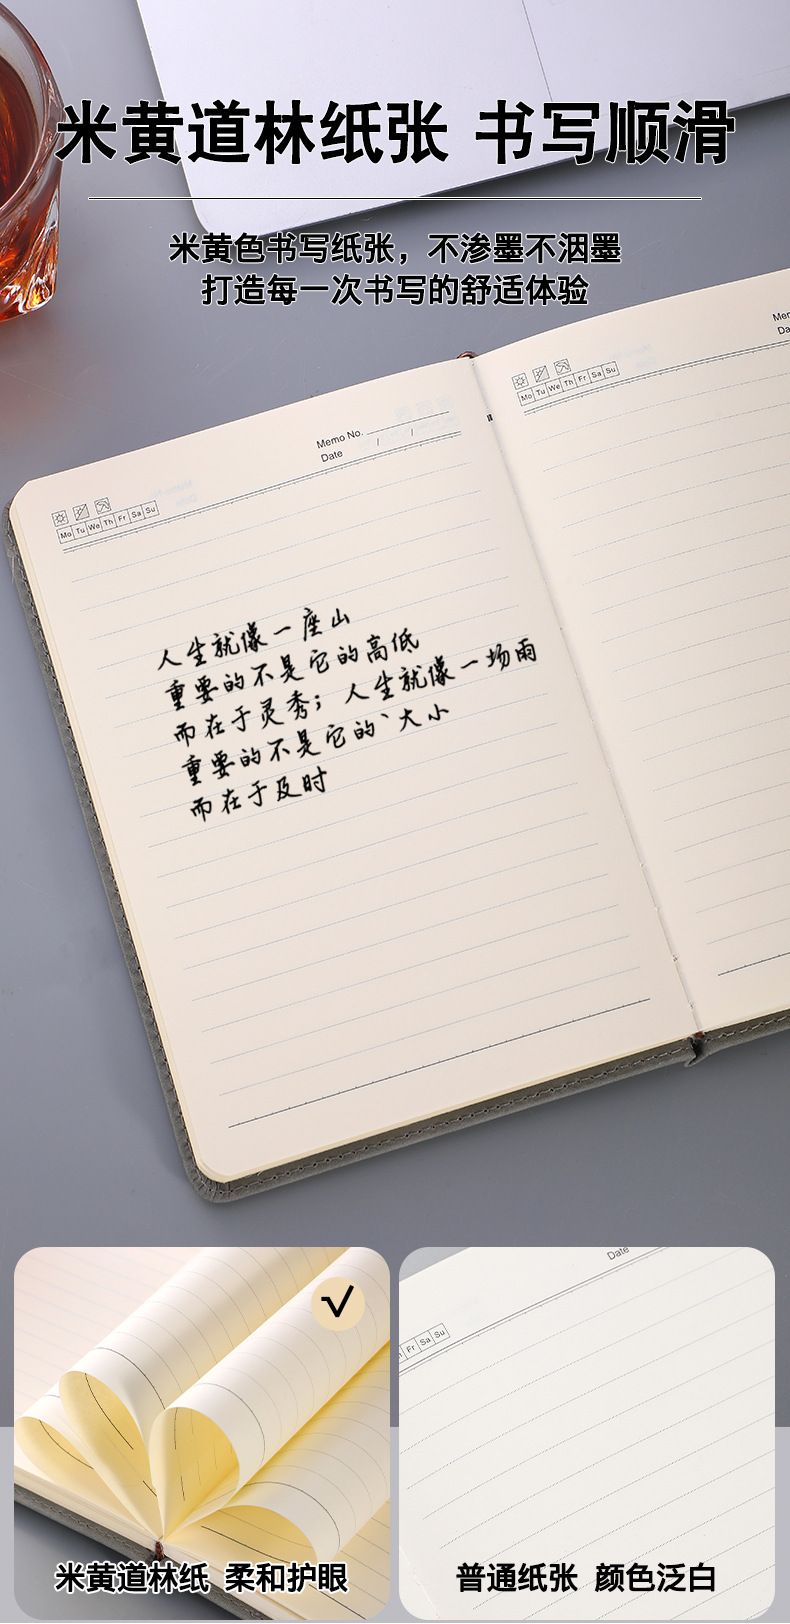 米黄道林纸张 书写顺滑
米黄色书写纸张，不渗墨不洇墨
打造每一次书写的舒适体验
Memo No.
Date / /
Mo Tu We Th Fr Sa Su
Mo Tu We Th Fr Sa Su
人生就像一座山
重要的不是它的高低
而在于灵秀；人生就像一场雨
重要的不是它的大小
而在于及时
米黄道林纸 柔和护眼
Date
Fr Sa Su
普通纸张 颜色泛白